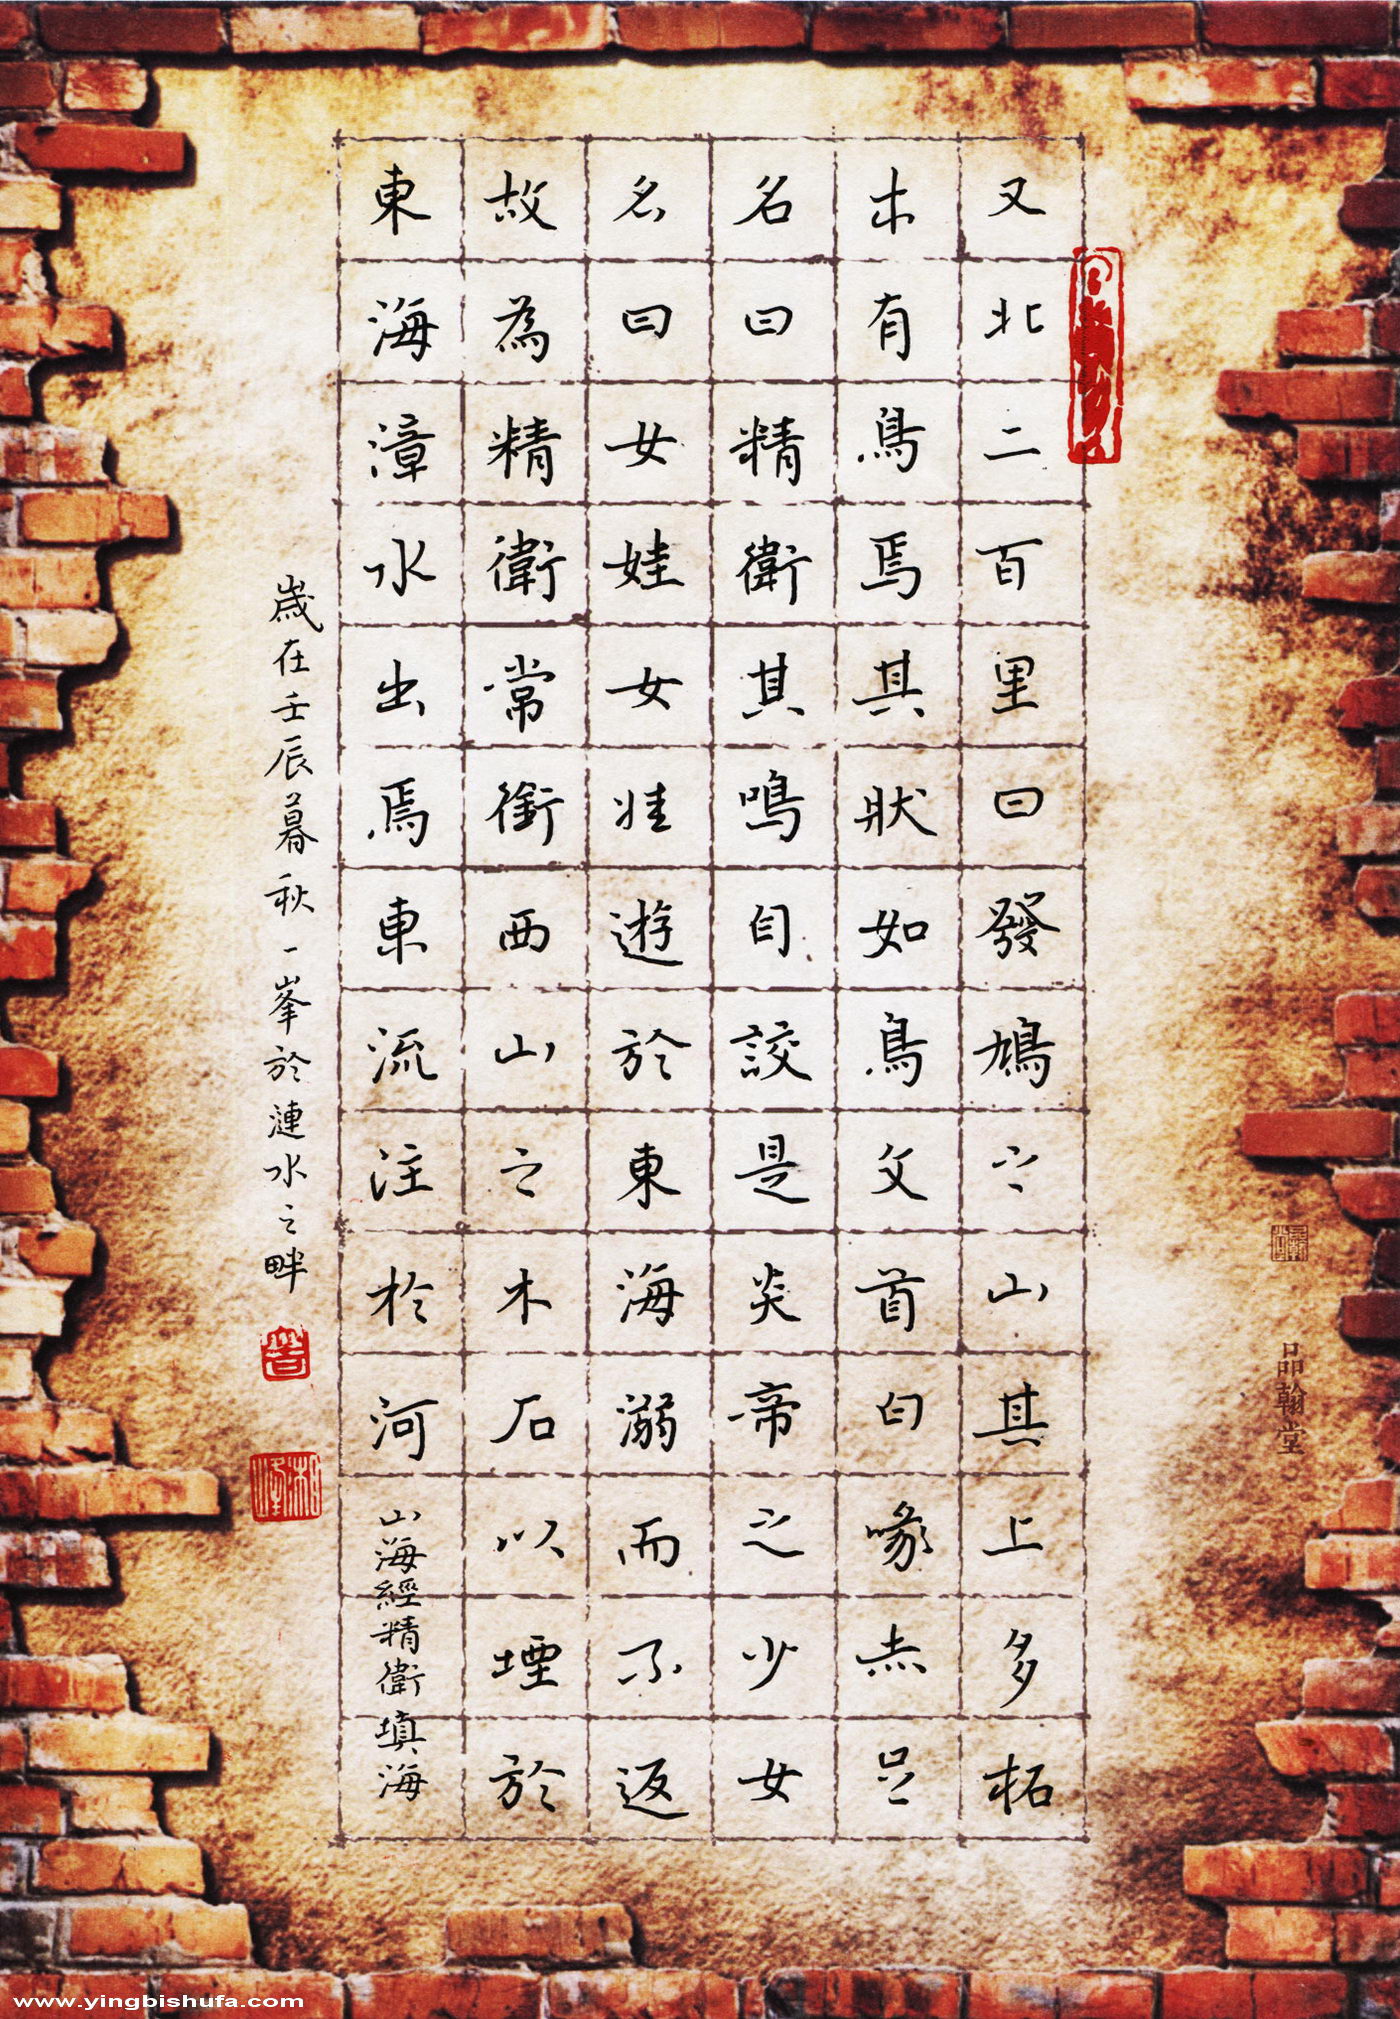 又北二百里曰發鳩之山其上多柘
木有鳥焉其狀如鳥文首白喙赤足
名曰精衛其鳴自詨是炎帝之少女
名曰女娃女娃遊於東海溺而不返
故為精衛常銜西山之木石以堙於
東海漳水出焉東流注於河
山海經精衛填海
歲在壬辰暮秋一峯於漣水之畔
品翰堂
www.yingbishufa.com